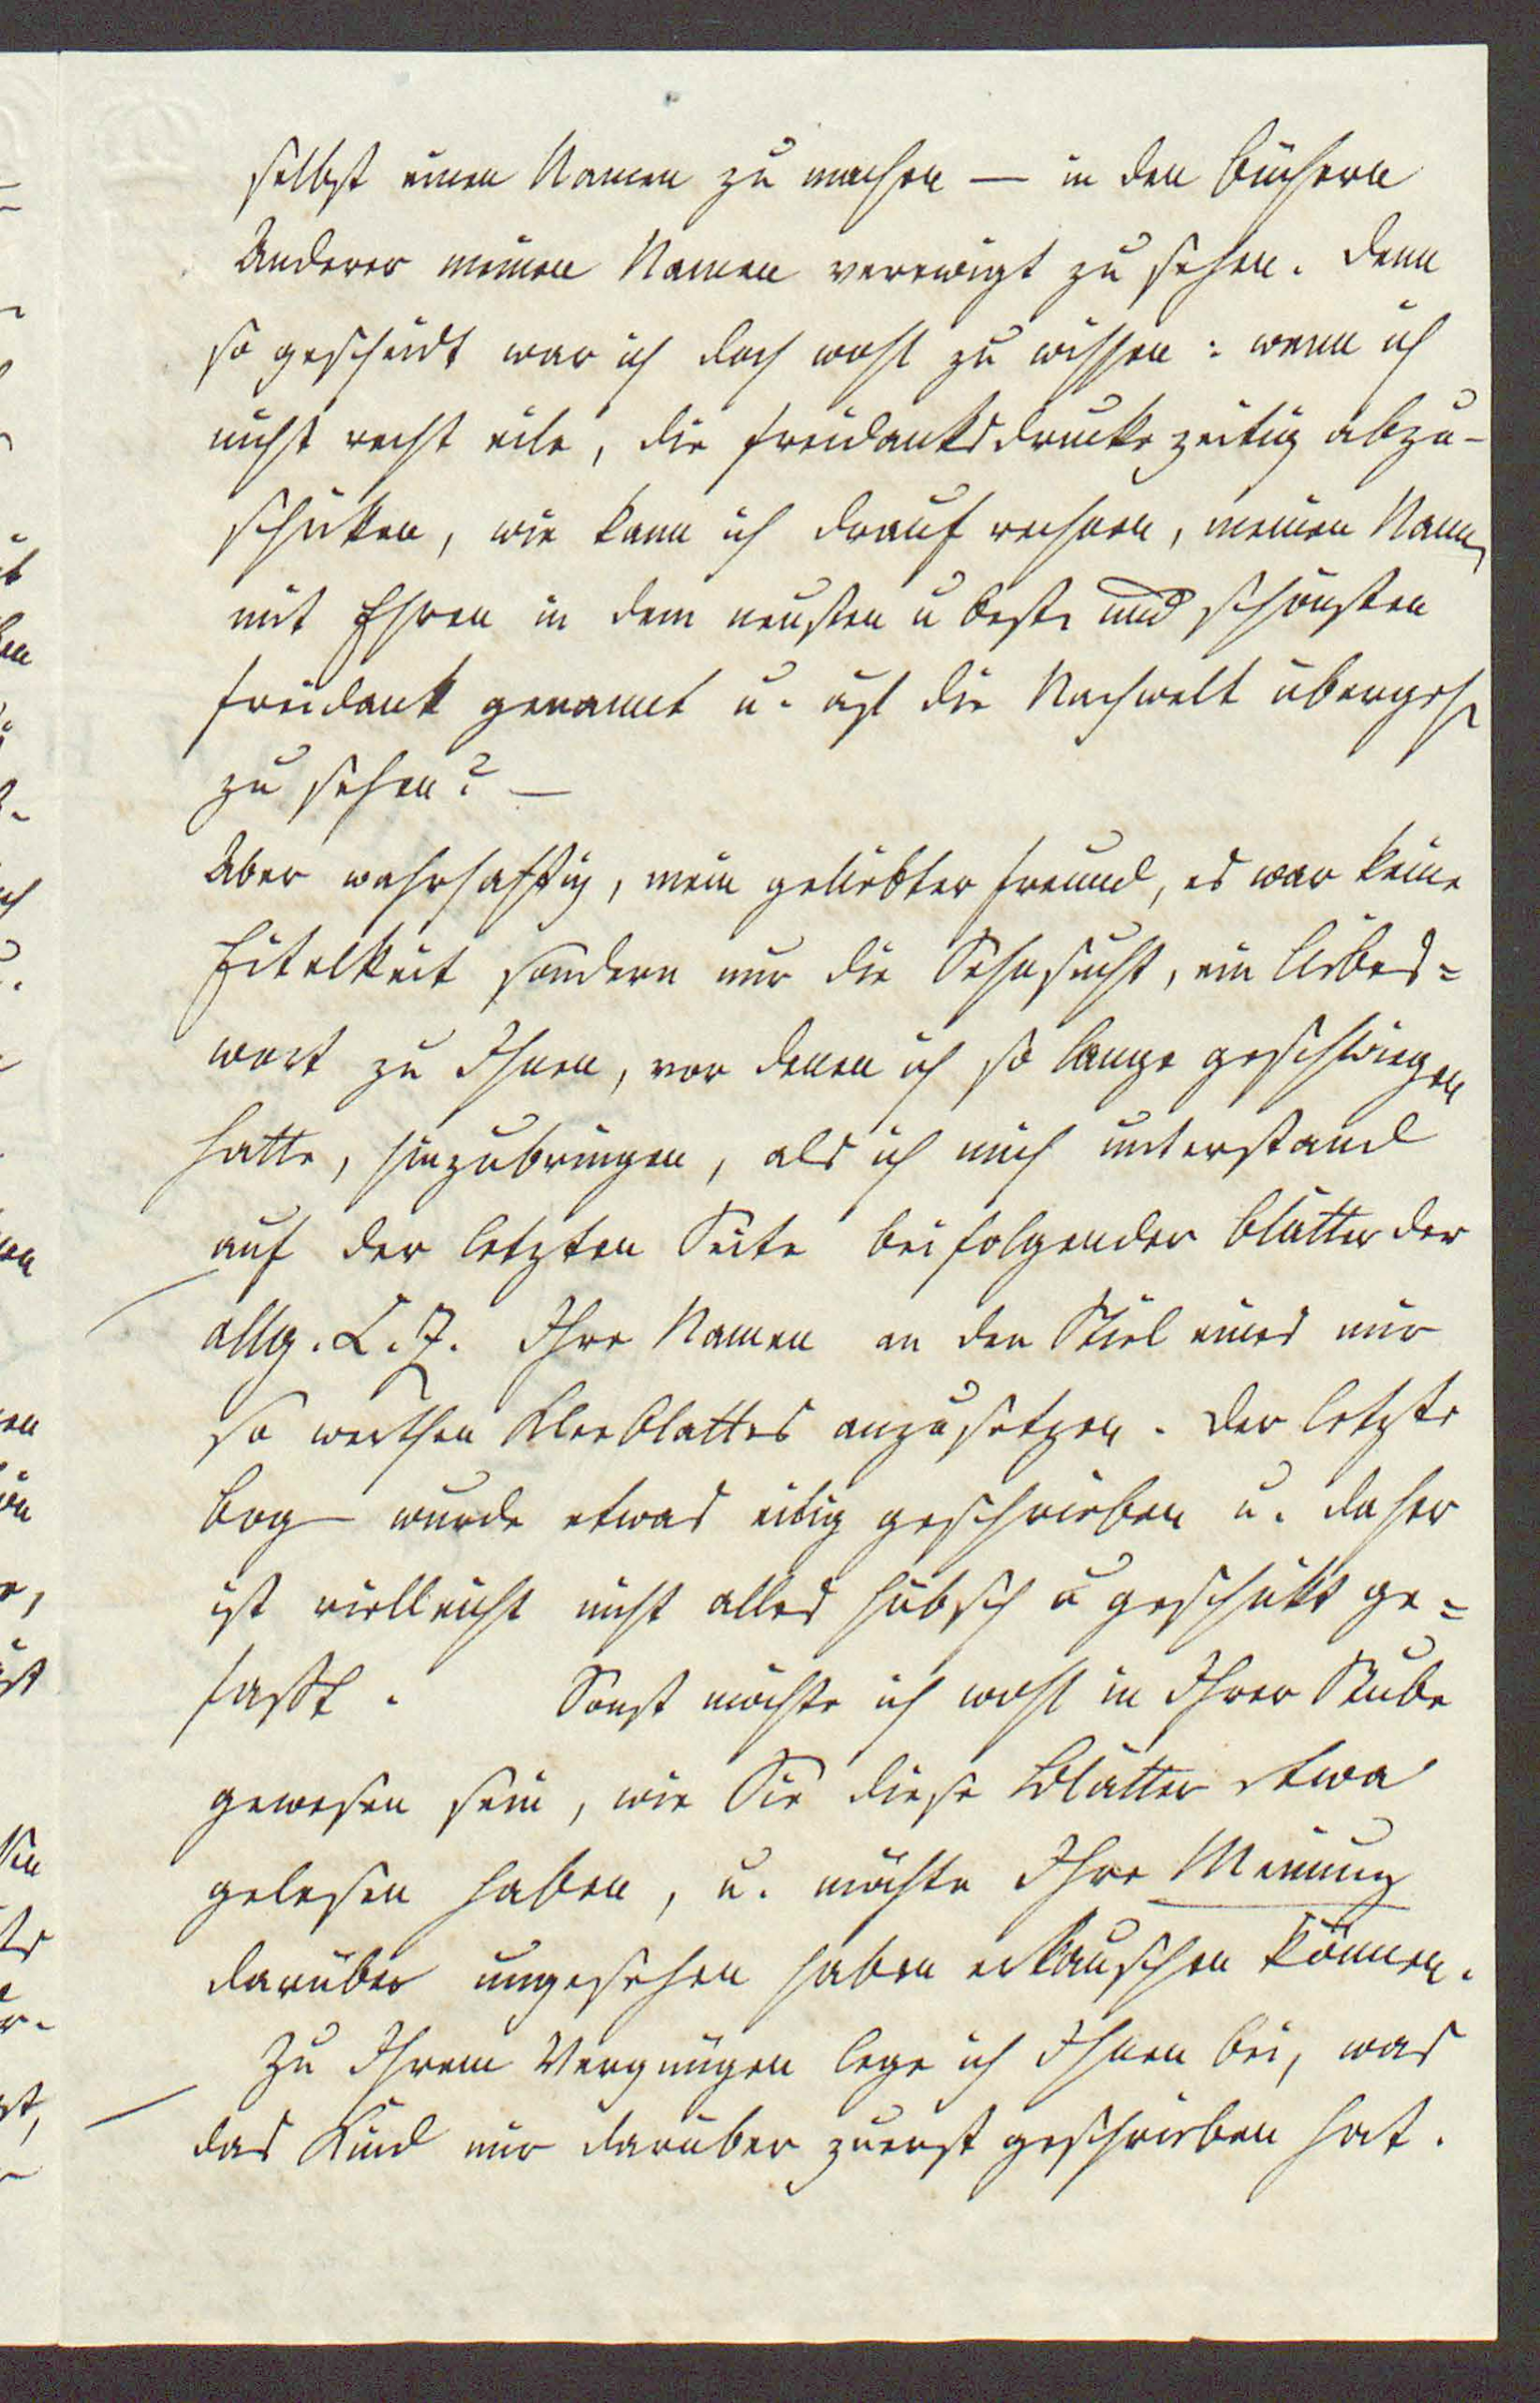 selbst einen Namen zu machen — in den Büchern
Anderer meinen Namen verewigt zu sehen. Denn
so gescheidt war ich doch wohl zu wissen: wenn ich
nicht recht eile, die Freidanksdrucke zeitig abzu-
schicken, wie kann ich drauf rechnen, meinen Namen
mit Ehren in dem neusten u beste und schönsten
Freidank genannt u. auf die Nachwelt übergehen
zu sehen? —
Aber wahrhafftig, mein geliebter Freund, es war keine
Eitelkeit sondern nur die Sehnsucht, ein Liebes=
wort zu Ihnen, vor denen ich so lange geschwiegen
hatte, hinzubringen, als ich mich unterstand
auf der letzten Seite beifolgender Blätter der
allg. L. Z. Ihre Namen an den Stiel eines mir
so werthen Kleeblattes anzusetzen. Der letzte
Bog— wurde etwas eilig geschrieben u. daher
ist vielleicht nicht alles hübsch u geschickt ge=
fasst. Sonst möchte ich wohl in Ihrer Stube
gewesen sein, wie Sie diese Blätter etwa
gelesen haben, u. möchte Ihre Meinung
darüber ungesehen haben erlauschen können.
Zu Ihrem Vergnügen lege ich Ihnen bei, was
das Kind mir darüber zuerst geschrieben hat.